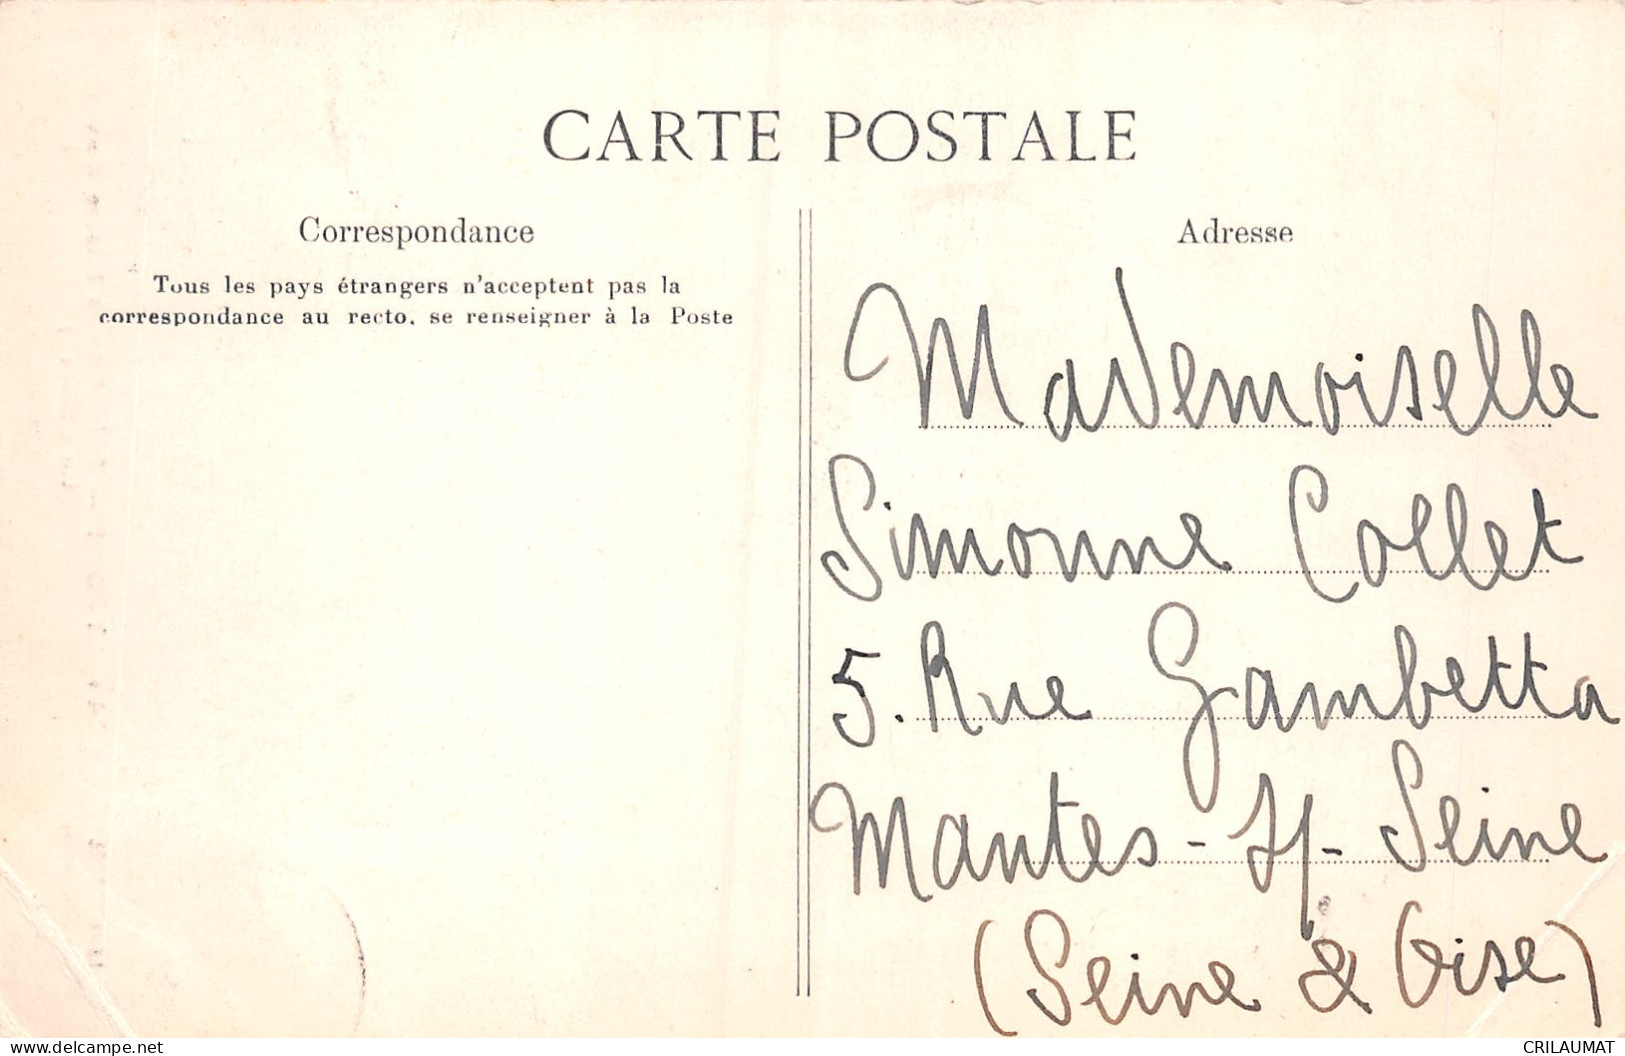 CARTE POSTALE
Correspondance
Tous les pays étrangers n'acceptent pas la
correspondance au recto, se renseigner à la Poste
Adresse
Mademoiselle
Simonne Collet
5. Rue Gambetta
Mantes-s/-Seine
(Seine & Oise)
www.delcampe.net
CRILAUMAT